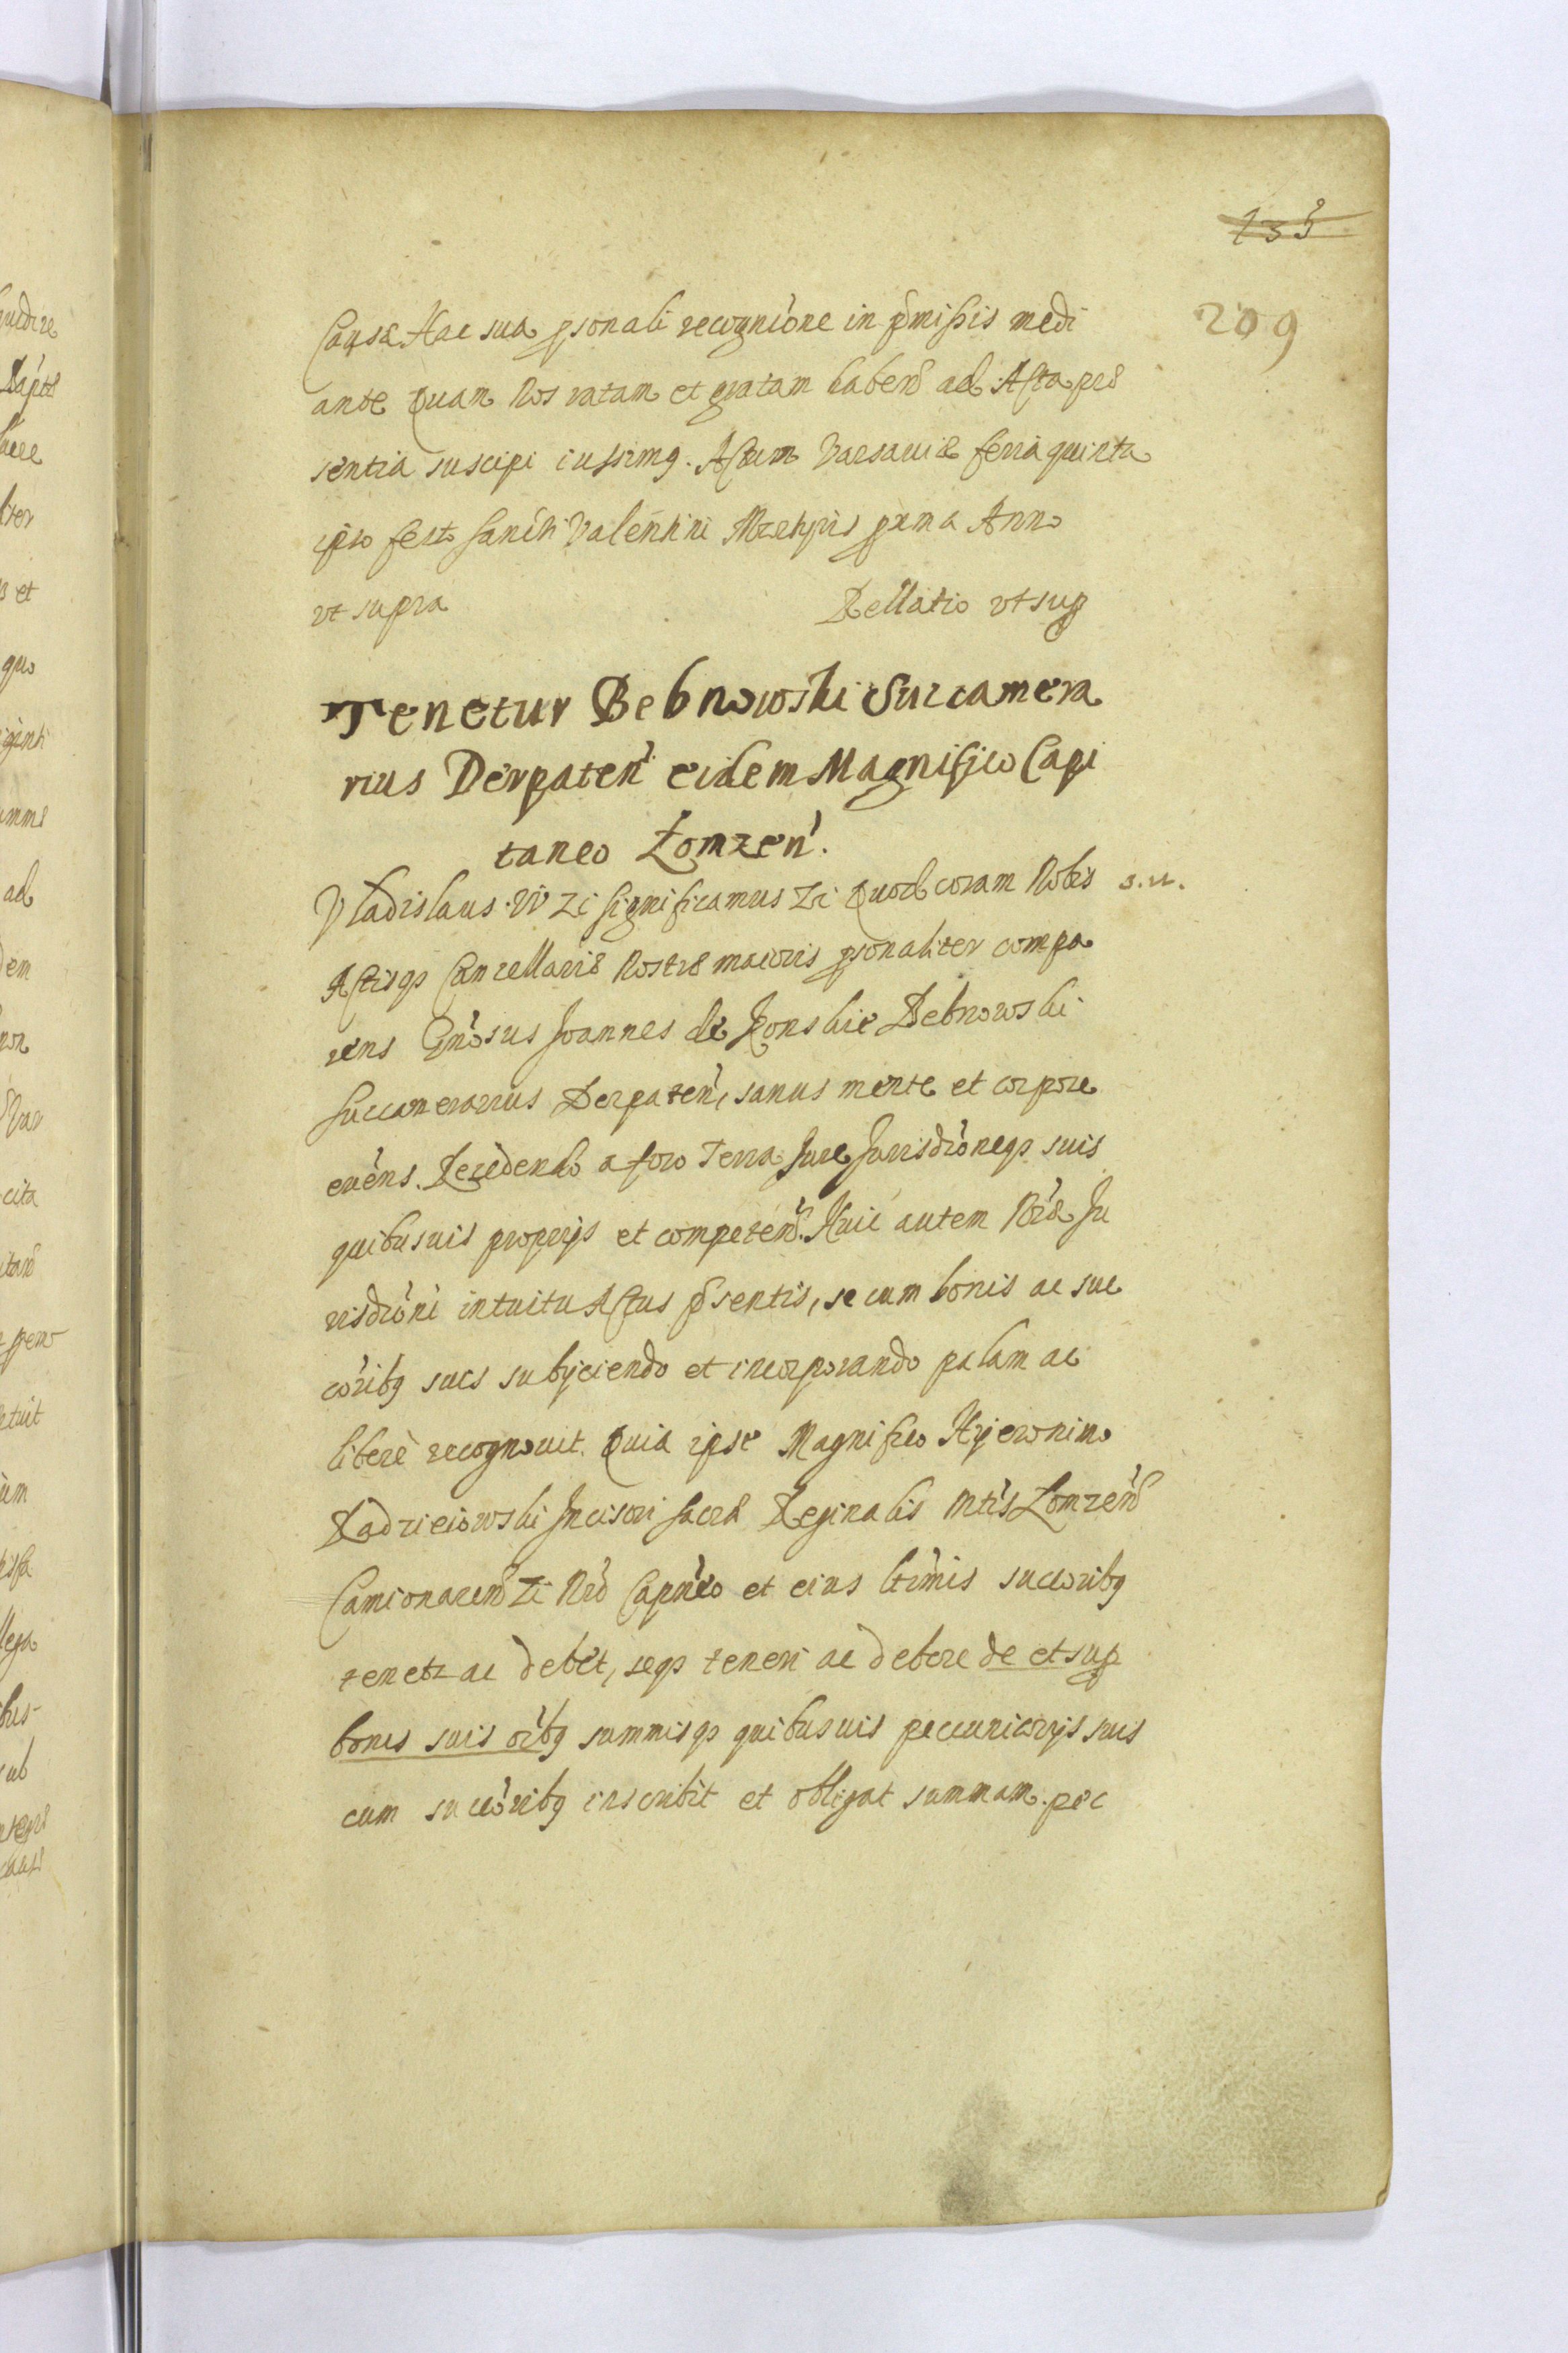 135
209
Causæ Hac sua psonali recognióne in pmissis medi
ante Quam Nos ratam et gratam habend ad Acta præ
sentia suscipi iussimq. Actum Varsauiæ feria quinta
ipso festo Sancti Valentini Mrtyris pxma Anno
vt supra Rellatio vt sup
Tenetur Debnowski Succamera
rius Derpaten eidem Magnifico Capi
taneo Łomzen.
Vladislaus IV Zc significamus Zc Quod coram Nobis s. u.
Actisqz Cancellariæ Nostræ maioris psonaliter compa
rens Gnosus Joannes de Konskie Debnowski
Succamerarius Derpaten, sanus mente et corpore
exens. Recedendo a foro Terra Jure Jurisdióneqz suis
quibusuis proprijs et competend. Huic autem Nræ Ju
risdióni intuitu Actus psentis, se cum bonis ac suc
córibq suis subijciendo et incorporando palam ac
liberè recognouit. Quia ipse Magnifico Hyeronimo
Radzieiowski Incisori Sacræ Reginalis Mtis Łomzen
Camionacen Zc Nro Capneo et eius ltimis succoribq
tenetr ac debet, seqz teneri ac debere de et sup
bonis suis oibq summisqz quibusuis pecuniarijs suis
cum succoribq inscribit et obligat summam pec